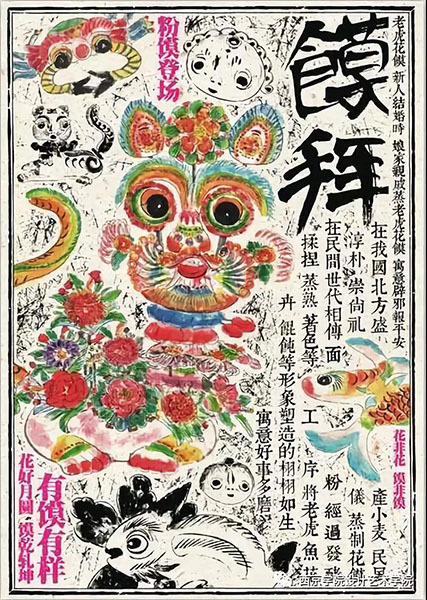 老虎花饃 新人結婚時 娘家親戚蒸老虎花饃 寓意辟邪報平安
饃拜
粉馍登场
在我國北方盛
產小麥 民風
淳朴 崇尚礼
儀 蒸制花饃
在民間世代相傳 面
粉 經過發酵
揉捏 蒸熟 著色等 工
序 將老虎 魚 花
卉 餛飩等形象塑造的栩栩如生
寓意好事多磨
花非花 馍非馍
有馍有样
花好月圓
西京学院设计艺术学院